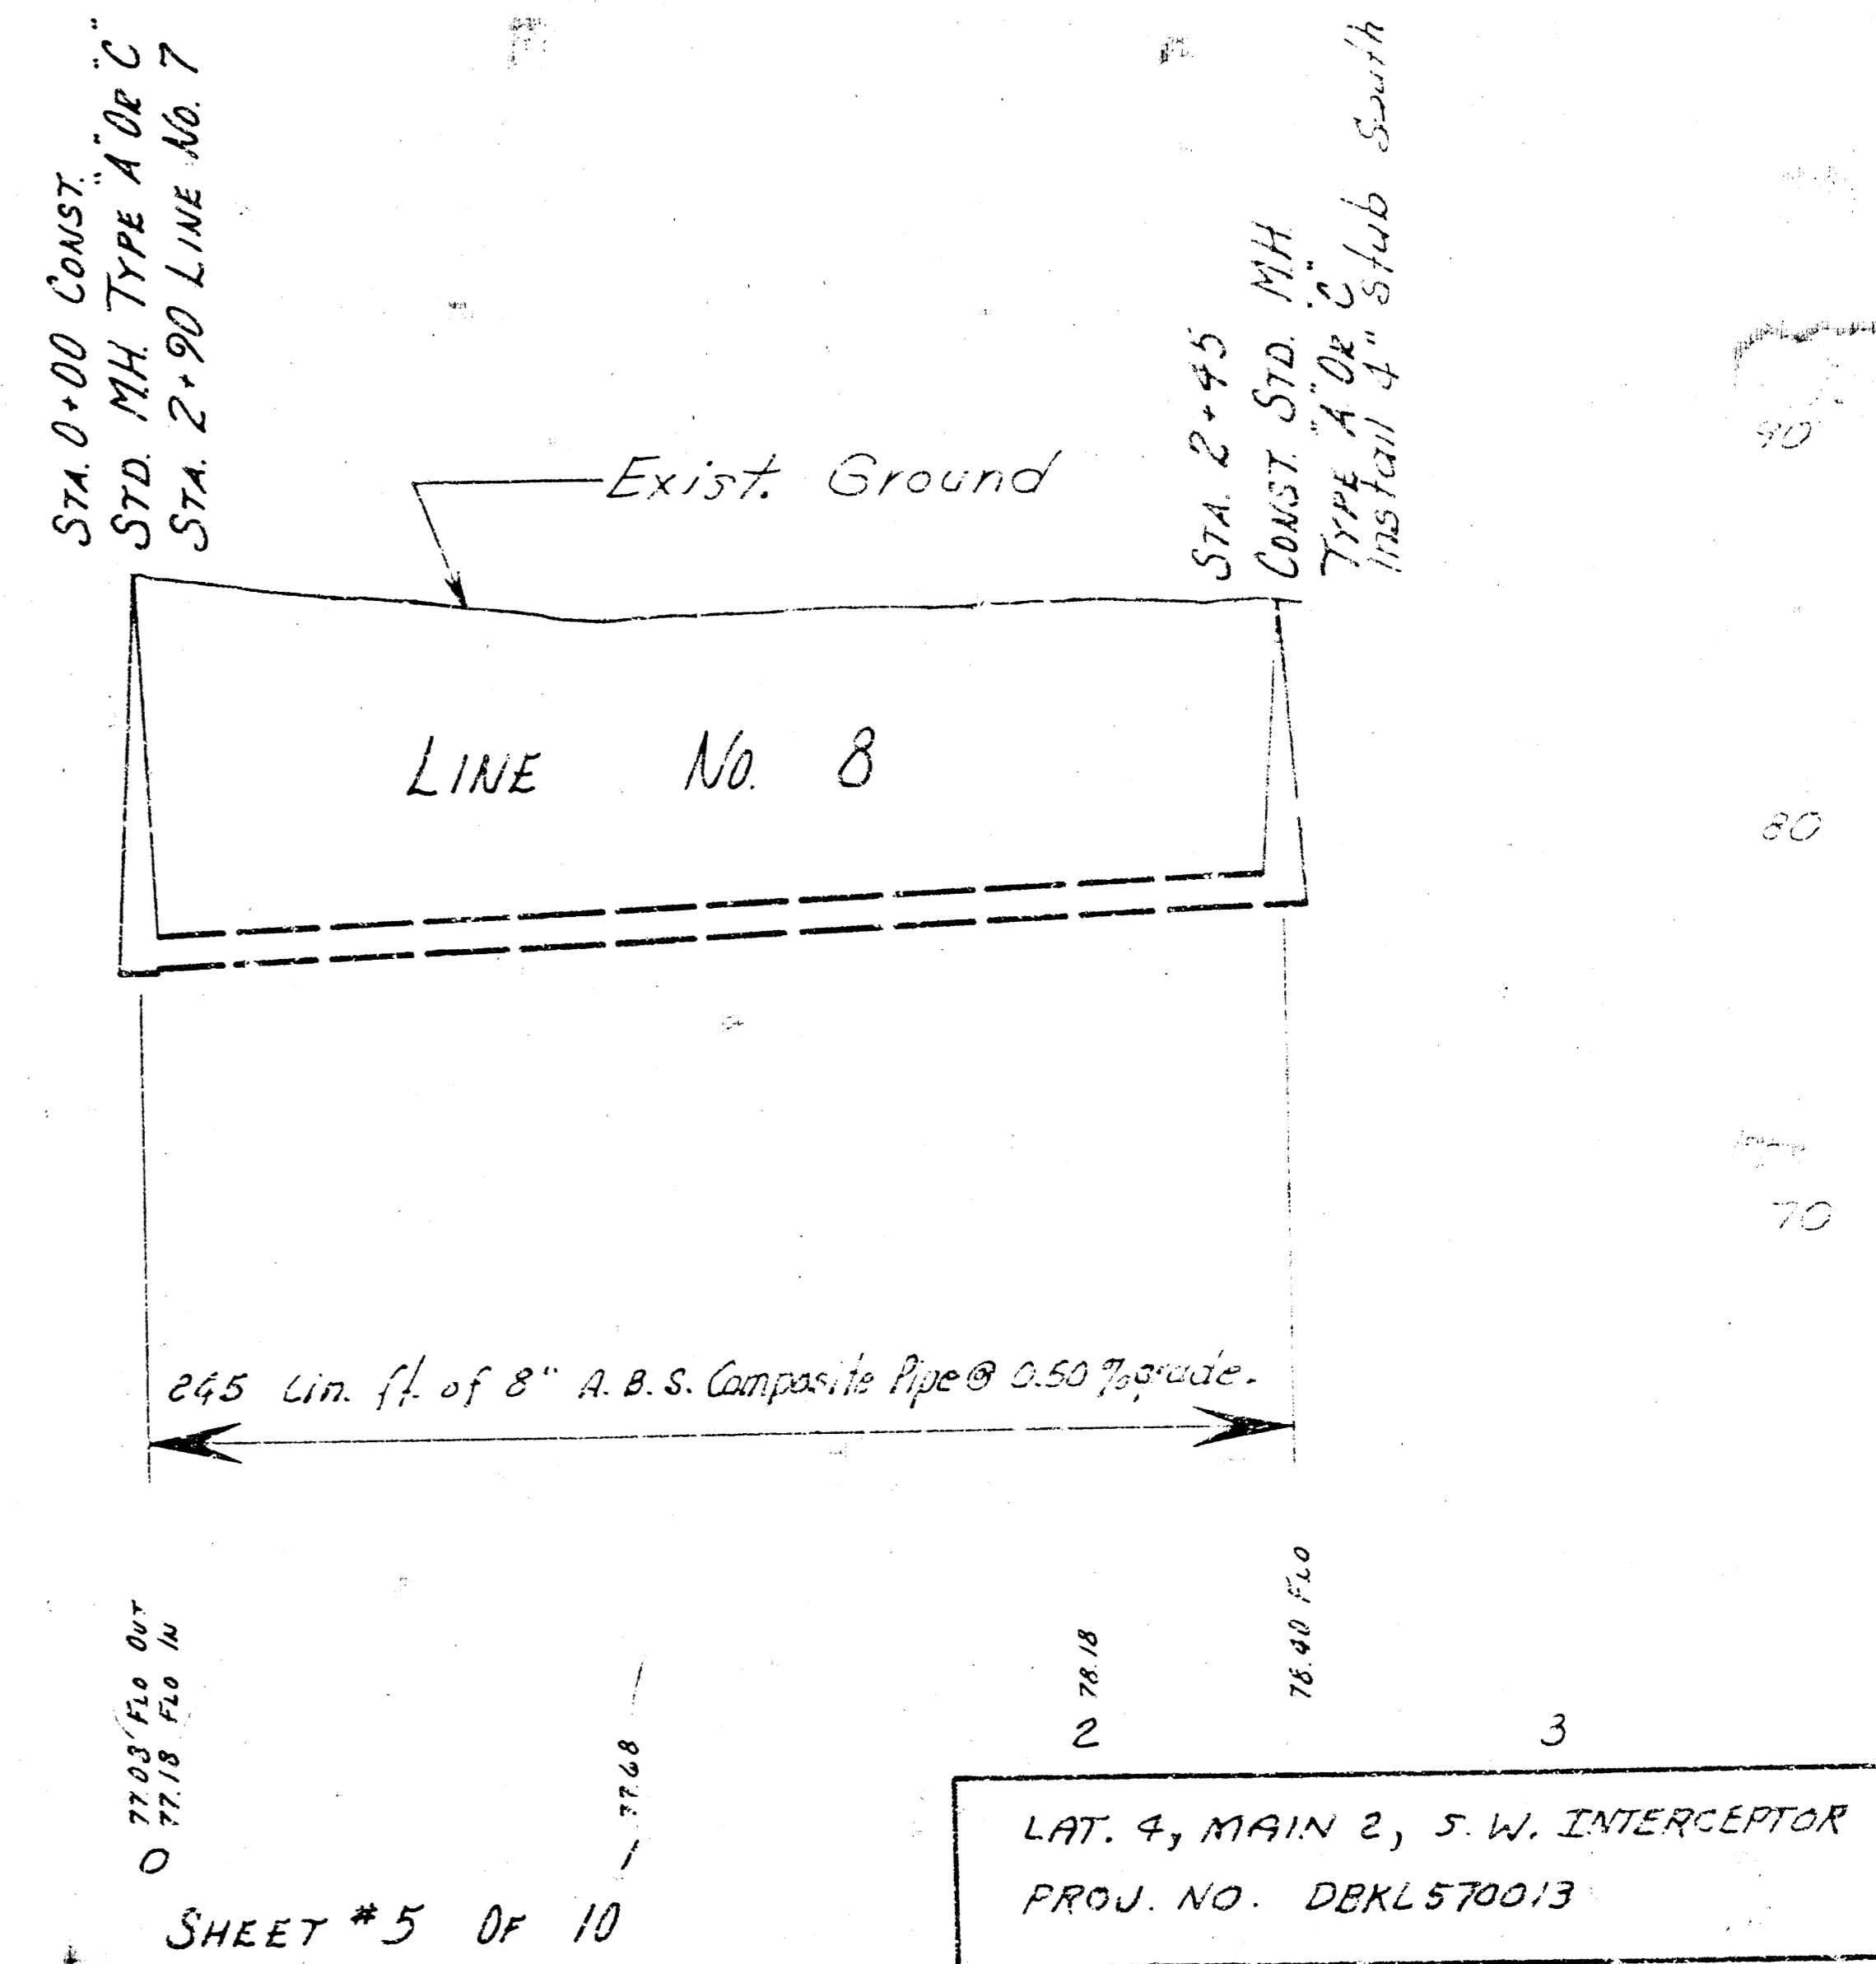 STA. 0+00 CONST.
STD. M.H. TYPE "A" OR "C"
STA. 2+90 LINE NO. 7
STA. 2+45
CONST. STD. M.H.
TYPE "A" OR "C"
Install 4" Stub South
Exist. Ground
90
LINE NO. 8
80
70
245 Lin. ft. of 8" A.B.S. Composite Pipe @ 0.50 % grade.
77.03' FLO OUT
77.18 FLO IN
0
77.68
78.18
2
78.40 FLO
3
LAT. 4, MAIN 2, S. W. INTERCEPTOR
PROJ. NO. DBKL570013
SHEET #5 OF 10